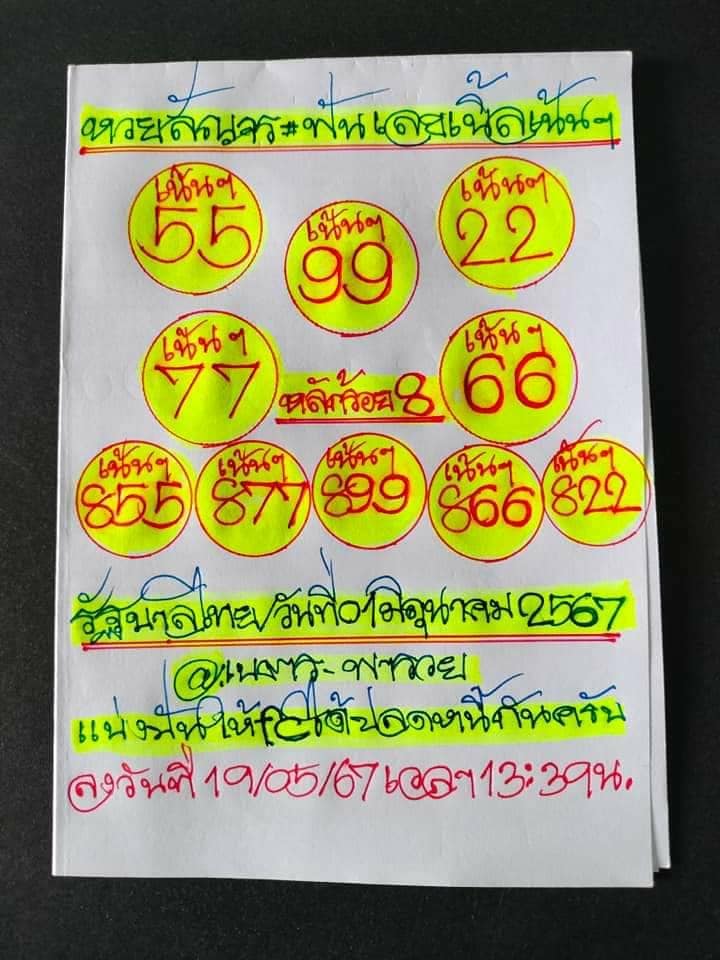 หวยสัญจร#ฟันเลยเนื้อเน้นๆ
เน้นๆ เน้นๆ เน้นๆ
55 99 22
เน้นๆ เน้นๆ
77 หลักร้อย 8 66
เน้นๆ เน้นๆ เน้นๆ เน้นๆ เน้นๆ
855 877 899 866 822
รัฐบาลไทย/วันที่01มิถุนาคม2567
แบ่งปันให้fcได้ปลดหนี้กันครับ
ลงวันที่ 19/05/67 เวลา13:39น.